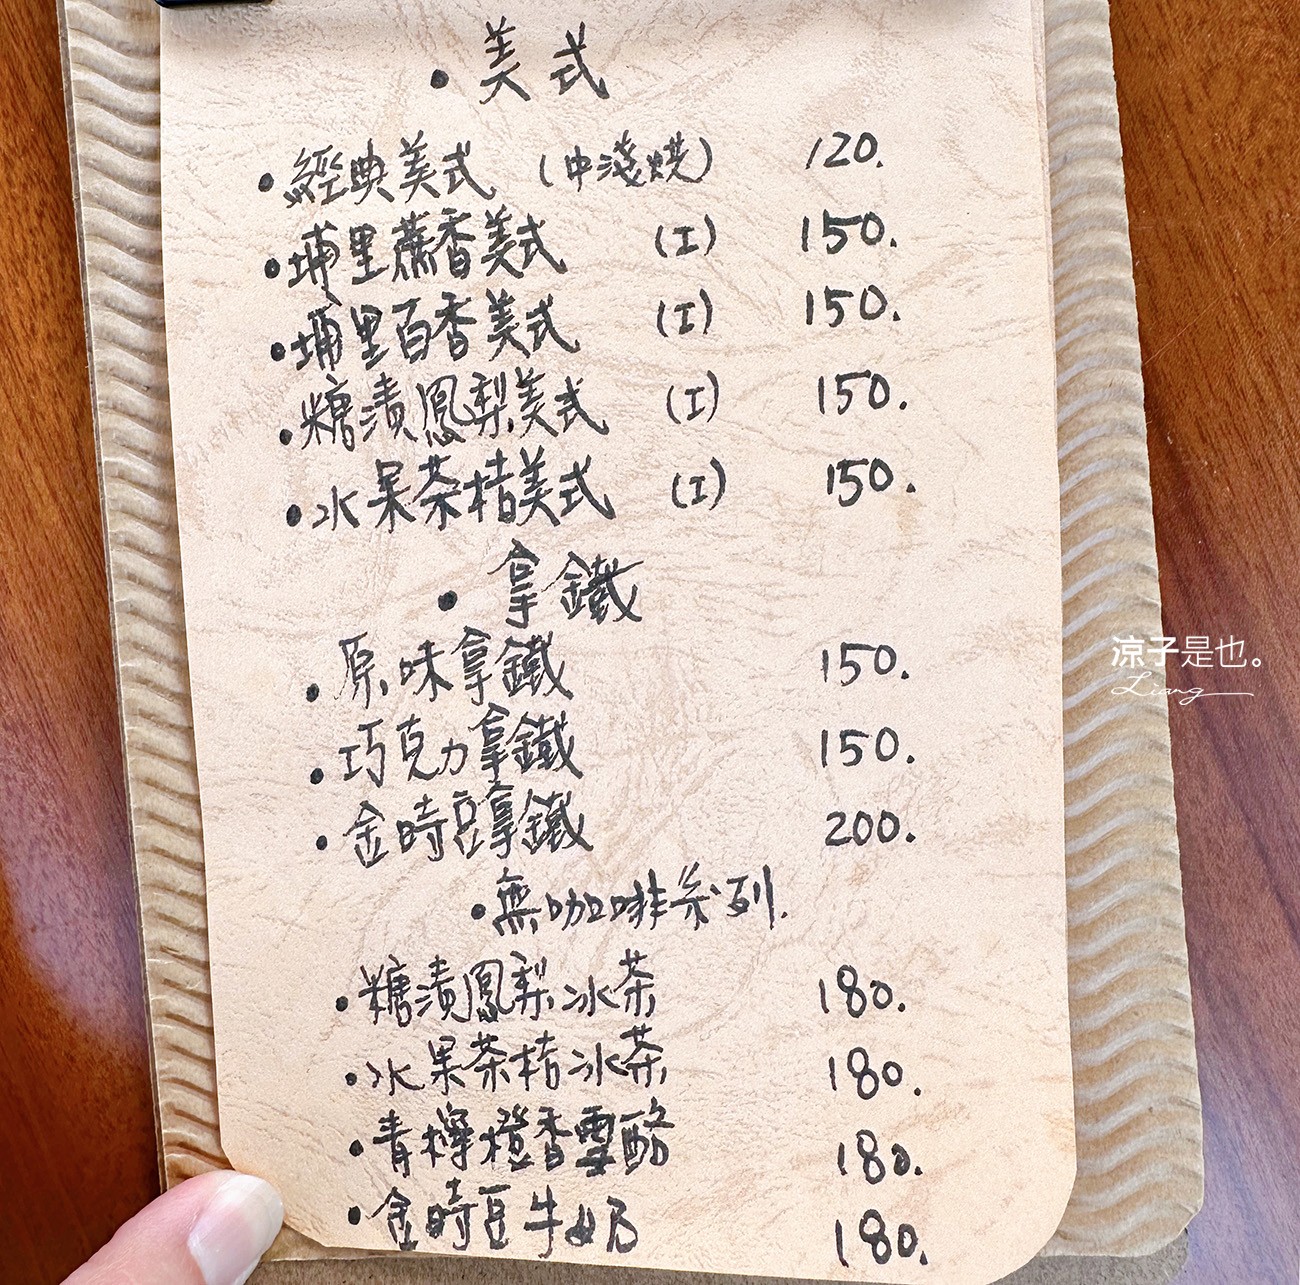 • 美式
• 經典美式 (中淺焙) 120.
• 埔里蔗香美式 (I) 150.
• 埔里百香美式 (I) 150.
• 糖漬鳳梨美式 (I) 150.
• 水果茶桔美式 (I) 150.
• 拿鐵
• 原味拿鐵 150.
• 巧克力拿鐵 150.
• 金時豆拿鐵 200.
• 無咖啡系列.
• 糖漬鳳梨冰茶 180.
• 水果茶桔冰茶 180.
• 青檸橙香雪酪 180.
• 金時豆牛奶 180.
涼子是也。
Liang